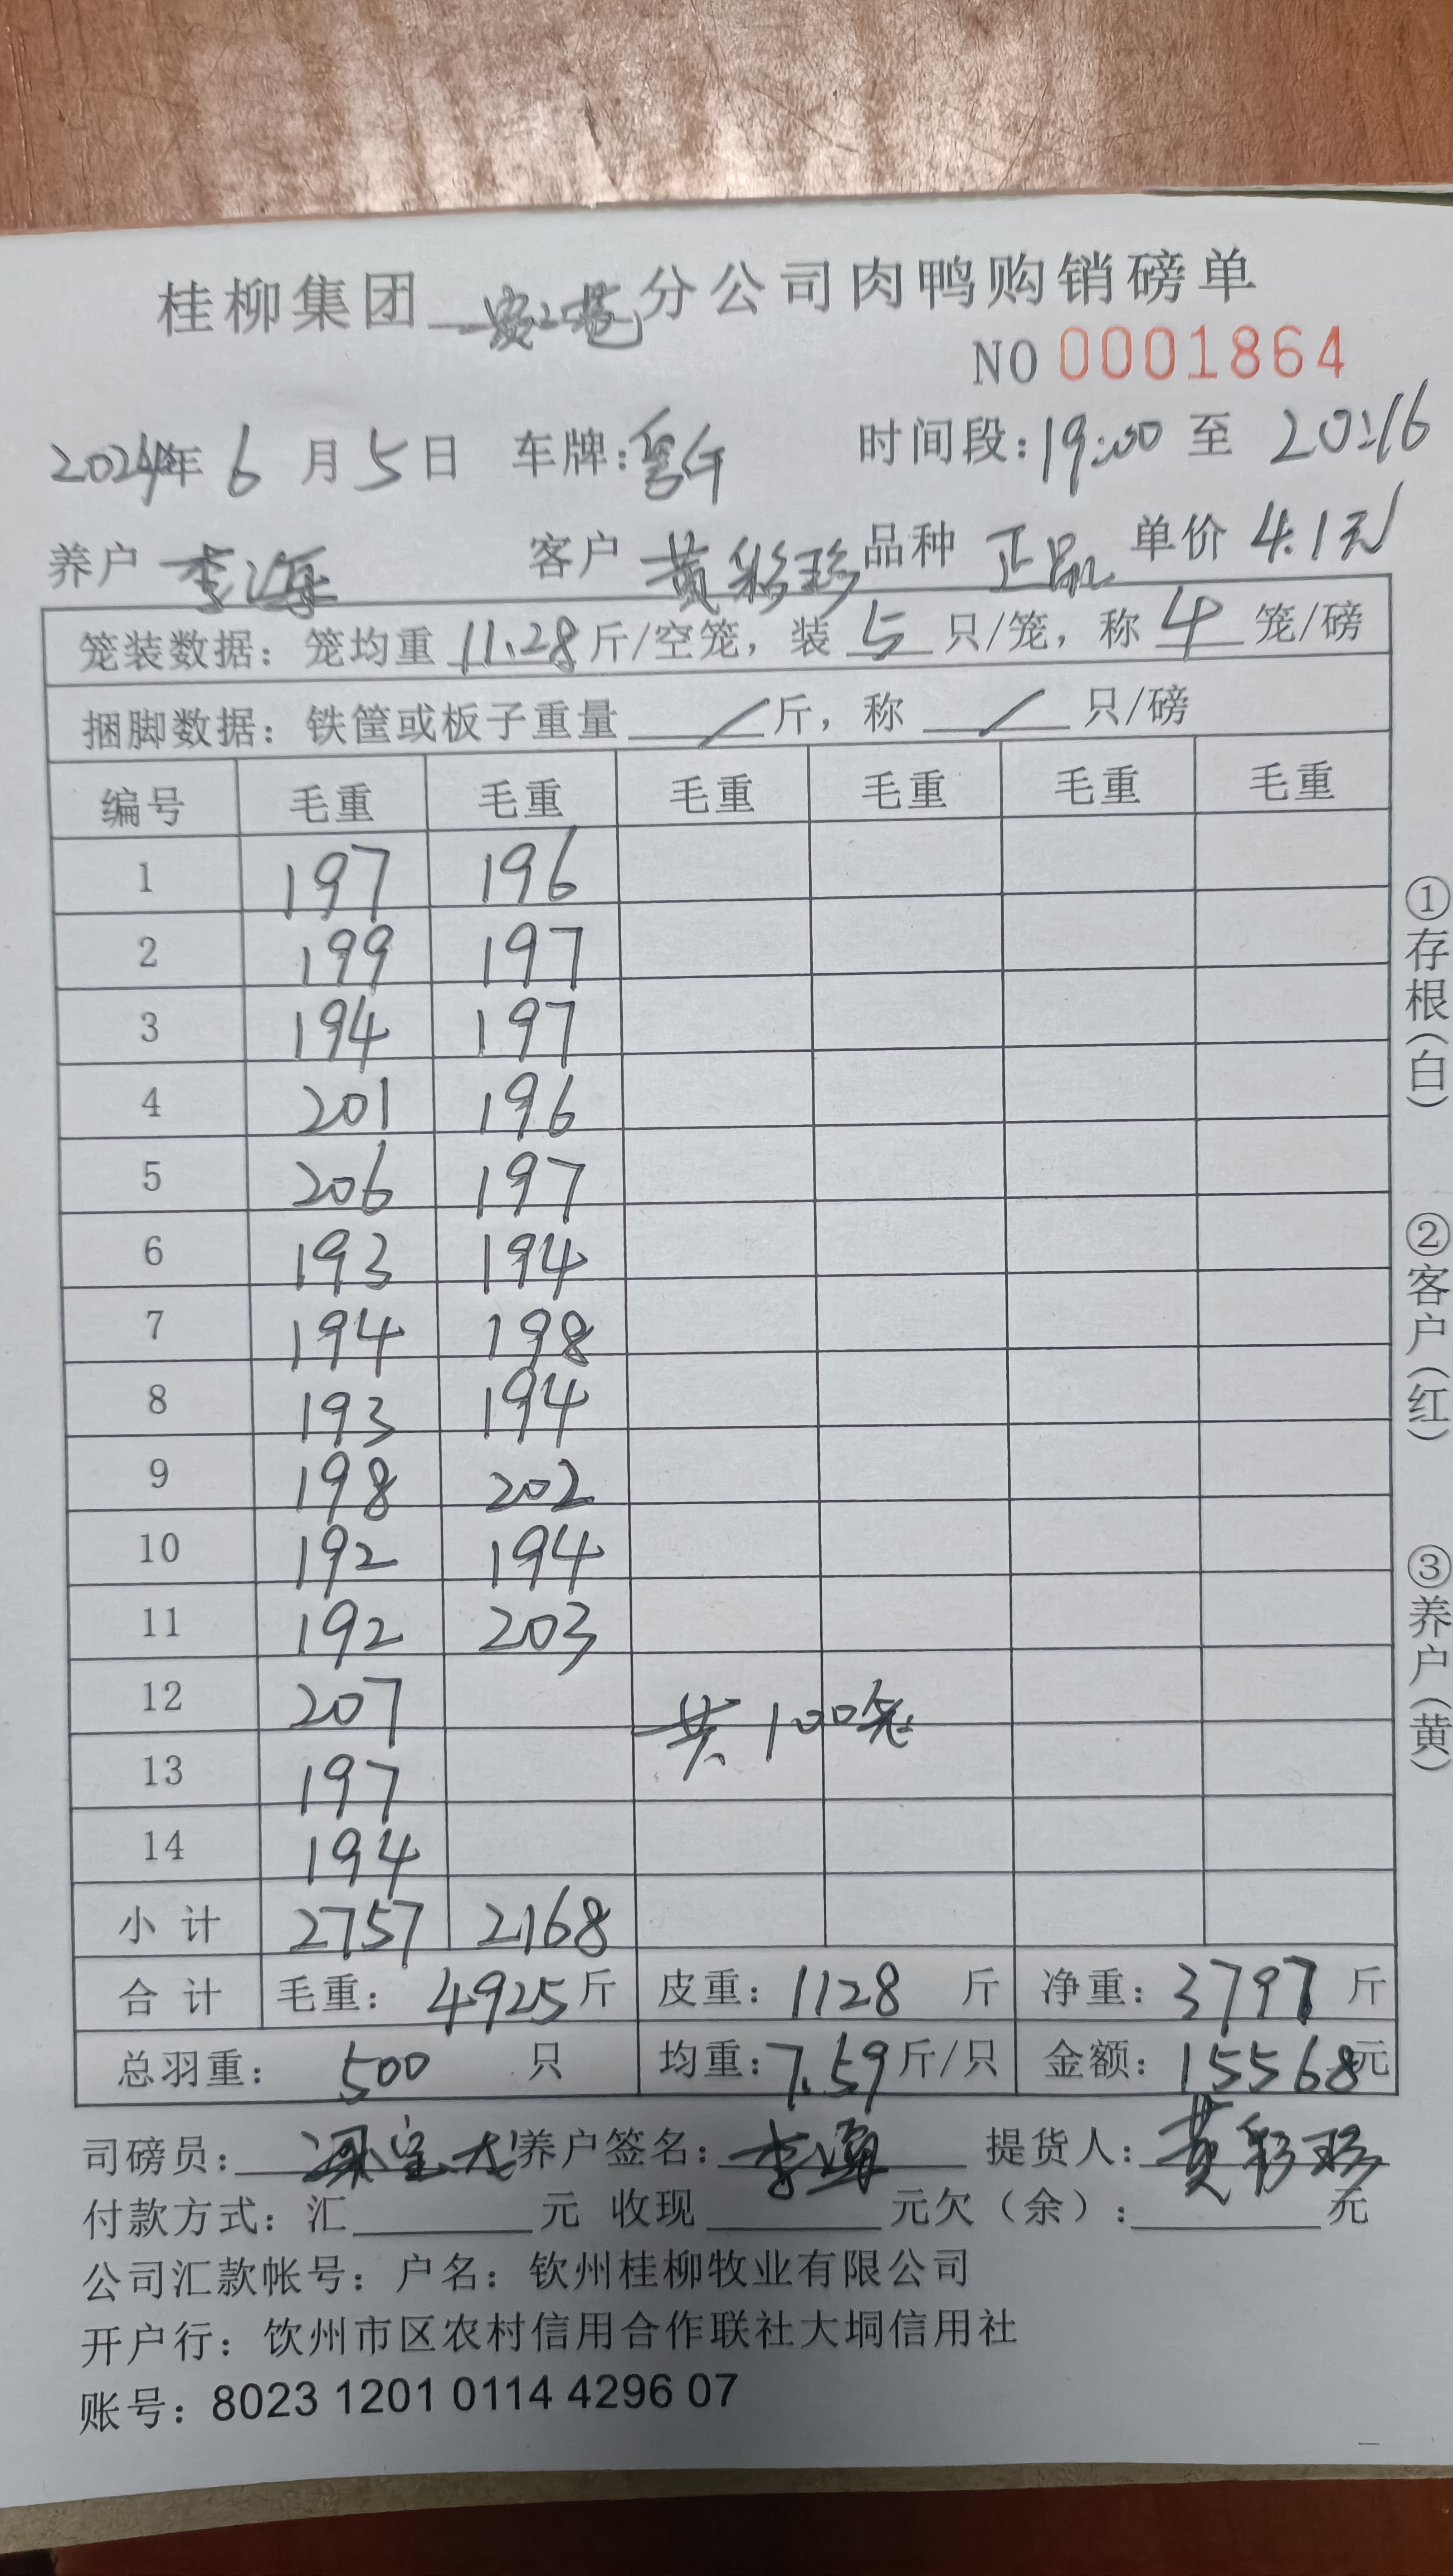 桂柳集团 分公司肉鸭购销磅单
NO 0001864
2024年 6 月 5 日 车牌: 时间段:19:00 至 20:16
养户 李海 客户 黄彩珍 品种 正品 单价 4.1元
笼装数据: 笼均重 11.28 斤/空笼, 装 5 只/笼, 称 4 笼/磅
捆脚数据: 铁筐或板子重量 / 斤, 称 / 只/磅
编号 毛重 毛重 毛重 毛重 毛重 毛重
1 197 196
2 199 197
3 194 197
4 201 196
5 206 197
6 193 194
7 194 198
8 193 194
9 198 202
10 192 194
11 192 203
12 207 共100笼
13 197
14 194
小 计 2757 2168
合 计 毛重: 4925 斤 皮重: 1128 斤 净重: 3797 斤
总羽重: 500 只 均重: 7.59 斤/只 金额: 15568元
司磅员: 养户签名: 李海 提货人: 黄彩珍
付款方式: 汇 元 收现 元欠(余): 元
公司汇款帐号: 户名: 钦州桂柳牧业有限公司
开户行: 钦州市区农村信用合作联社大垌信用社
账号: 8023 1201 0114 4296 07
①存根(白) ②客户(红) ③养户(黄)